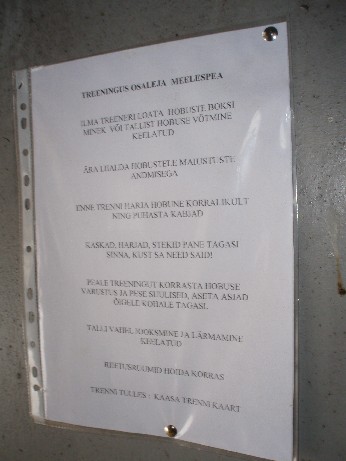 TREENINGUS OSALEJA MEELESPEA
ILMA TREENERI LOATA HOBUSTE BOKSI
MINEK VÕI TALLIST HOBUSE VÕTMINE
KEELATUD
ÄRA LIIALDA HOBUSTELE MAIUSTUSTE
ANDMISEGA
ENNE TRENNI HARJA HOBUNE KORRALIKULT
NING PUHASTA KABJAD
KASKAD, HARJAD, STEKID PANE TAGASI
SINNA, KUST SA NEED SAID!
PEALE TREENINGUT KORRASTA HOBUSE
VARUSTUS JA PESE SUULISED, ASETA ASJAD
ÕIGELE KOHALE TAGASI.
TALLI VAHEL JOOKSMINE JA LÄRMAMINE
KEELATUD
RIIETUSRUUMID HOIDA KORRAS
TRENNI TULLES : KAASA TRENNI KAART